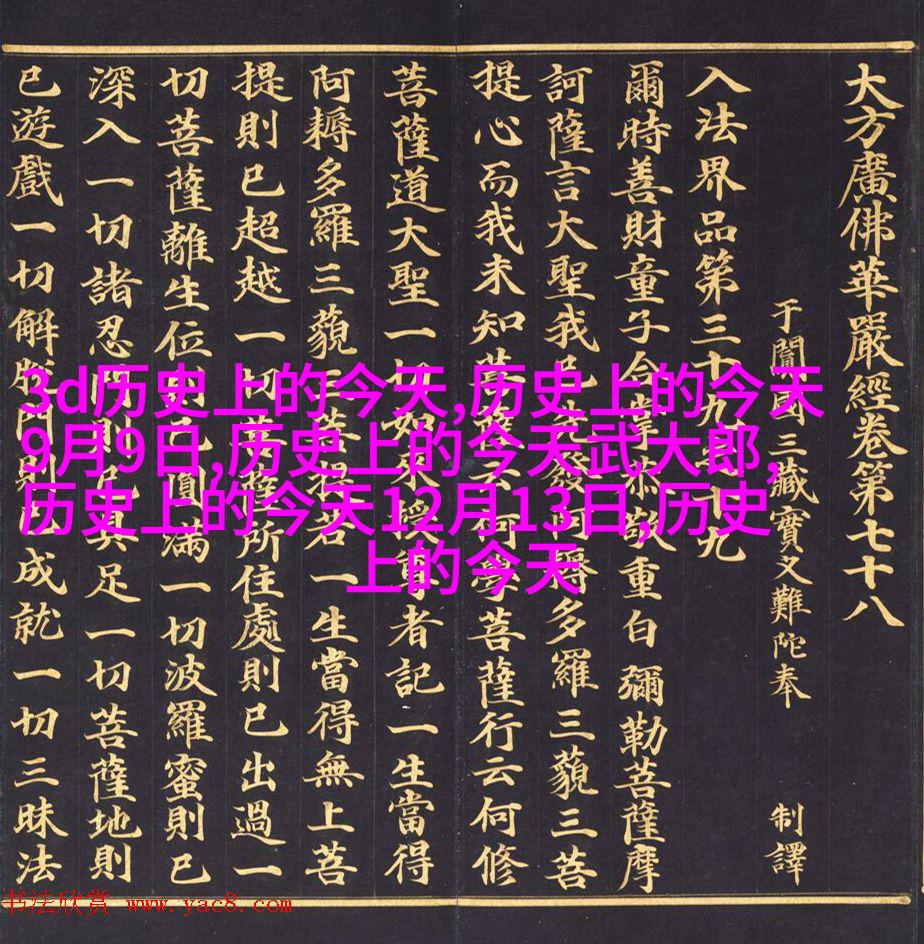 大方廣佛華嚴經卷第七十八
于闐國三藏實叉難陀奉 制譯
入法界品第三十九之十九
爾時善財童子合掌恭敬重白彌勒菩薩摩
訶薩言大聖我已先發阿耨多羅三藐三菩
提心而我未知菩薩云何學菩薩行云何修
菩薩道大聖一切如來授尊者記一生當得
阿耨多羅三藐三菩提若一生當得無上菩
提則已超越一切菩薩所住處則已出過一
切菩薩離生位則已圓滿一切波羅蜜則已
深入一切諸忍門則已具足一切菩薩地則
已遊戲一切解脫門則已成就一切三昧法
3d历史上的今天,历史上的今天
9月9日,历史上的今天武大郎,
历史上的今天12月13日,历史
上的今天
书法欣赏 www.yac8.com